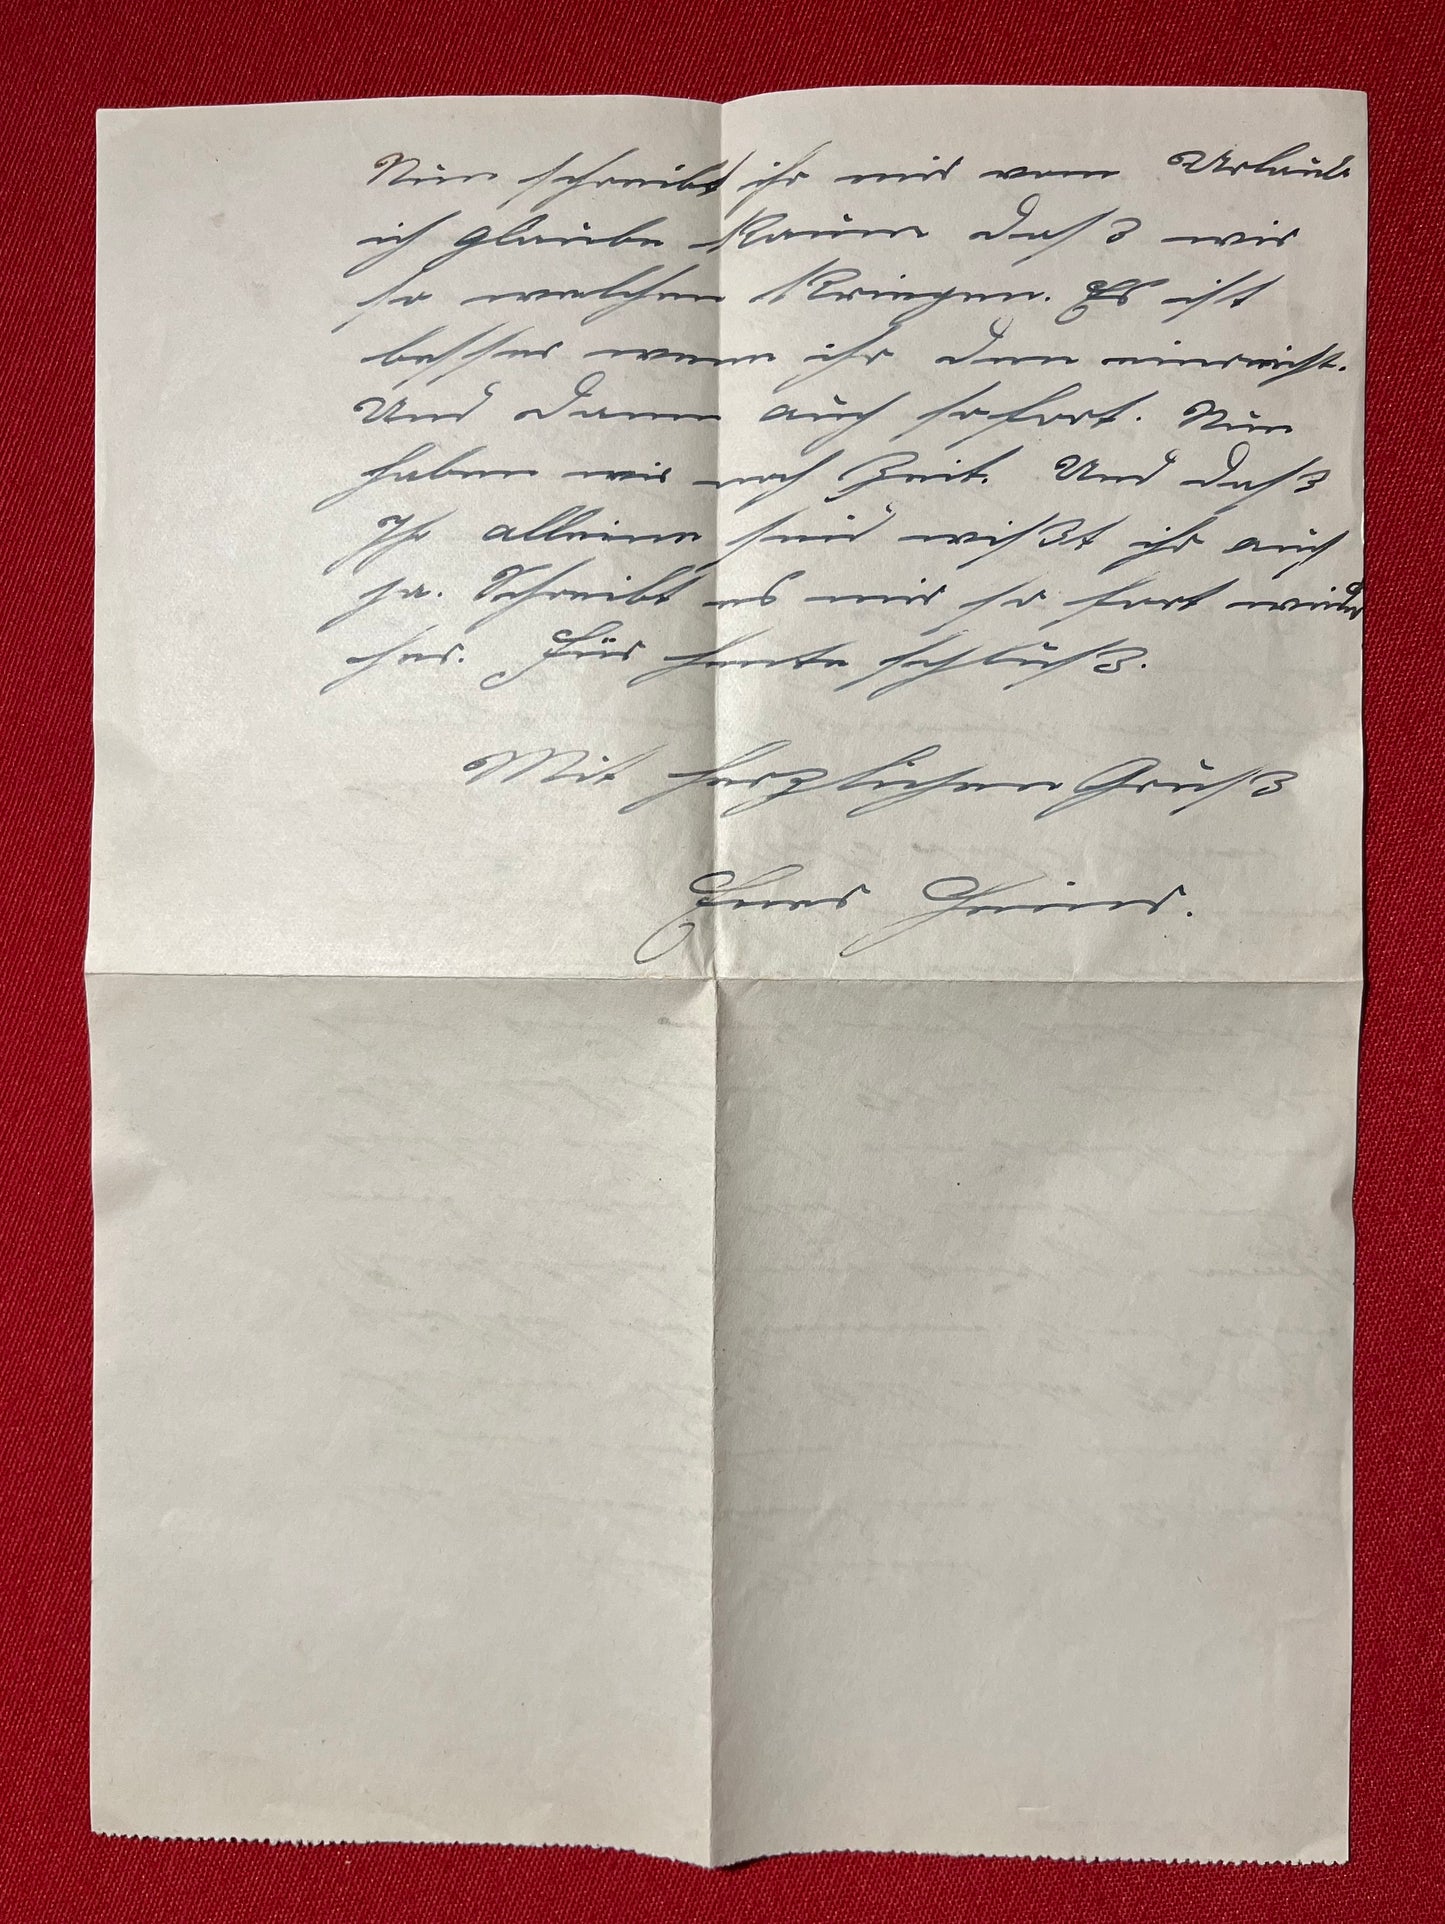 Nun schreibt ihr mir vom Urlaub
ich glaube kaum daß wir
so welchen kriegen. Es ist
besser wenn ihr den einreicht.
Und dann auch sofort. Nun
haben wir noch Zeit. Und daß
Ihr alleine seid wißt ihr auch
ja. Schreibt es mir so fort wieder
her. Für heute schluß.
Mit herzlichen Gruß
Euer